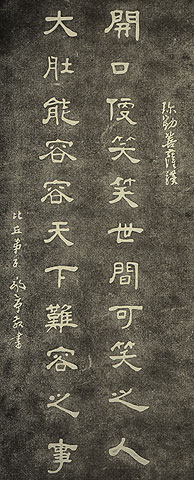 弥勒菩薩
開口便笑笑世間可笑之人
大肚能容容天下難容之事
比丘 書